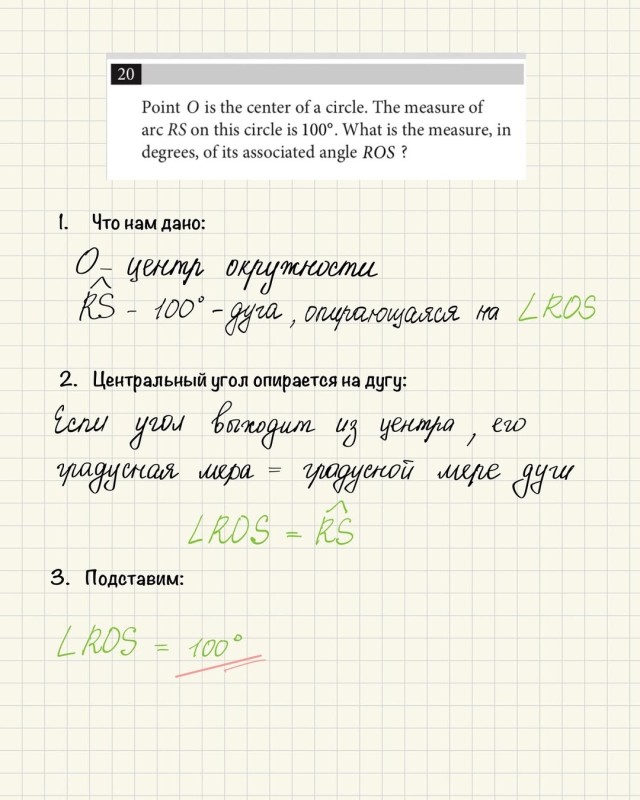 20
Point O is the center of a circle. The measure of
arc RS on this circle is 100°. What is the measure, in
degrees, of its associated angle ROS ?
1. Что нам дано:
O – центр окружности
R͡S – 100° – дуга, опирающаяся на ∠ROS
2. Центральный угол опирается на дугу:
Если угол выходит из центра, его
градусная мера = градусной мере дуги
∠ROS = R͡S
3. Подставим:
∠ROS = 100°